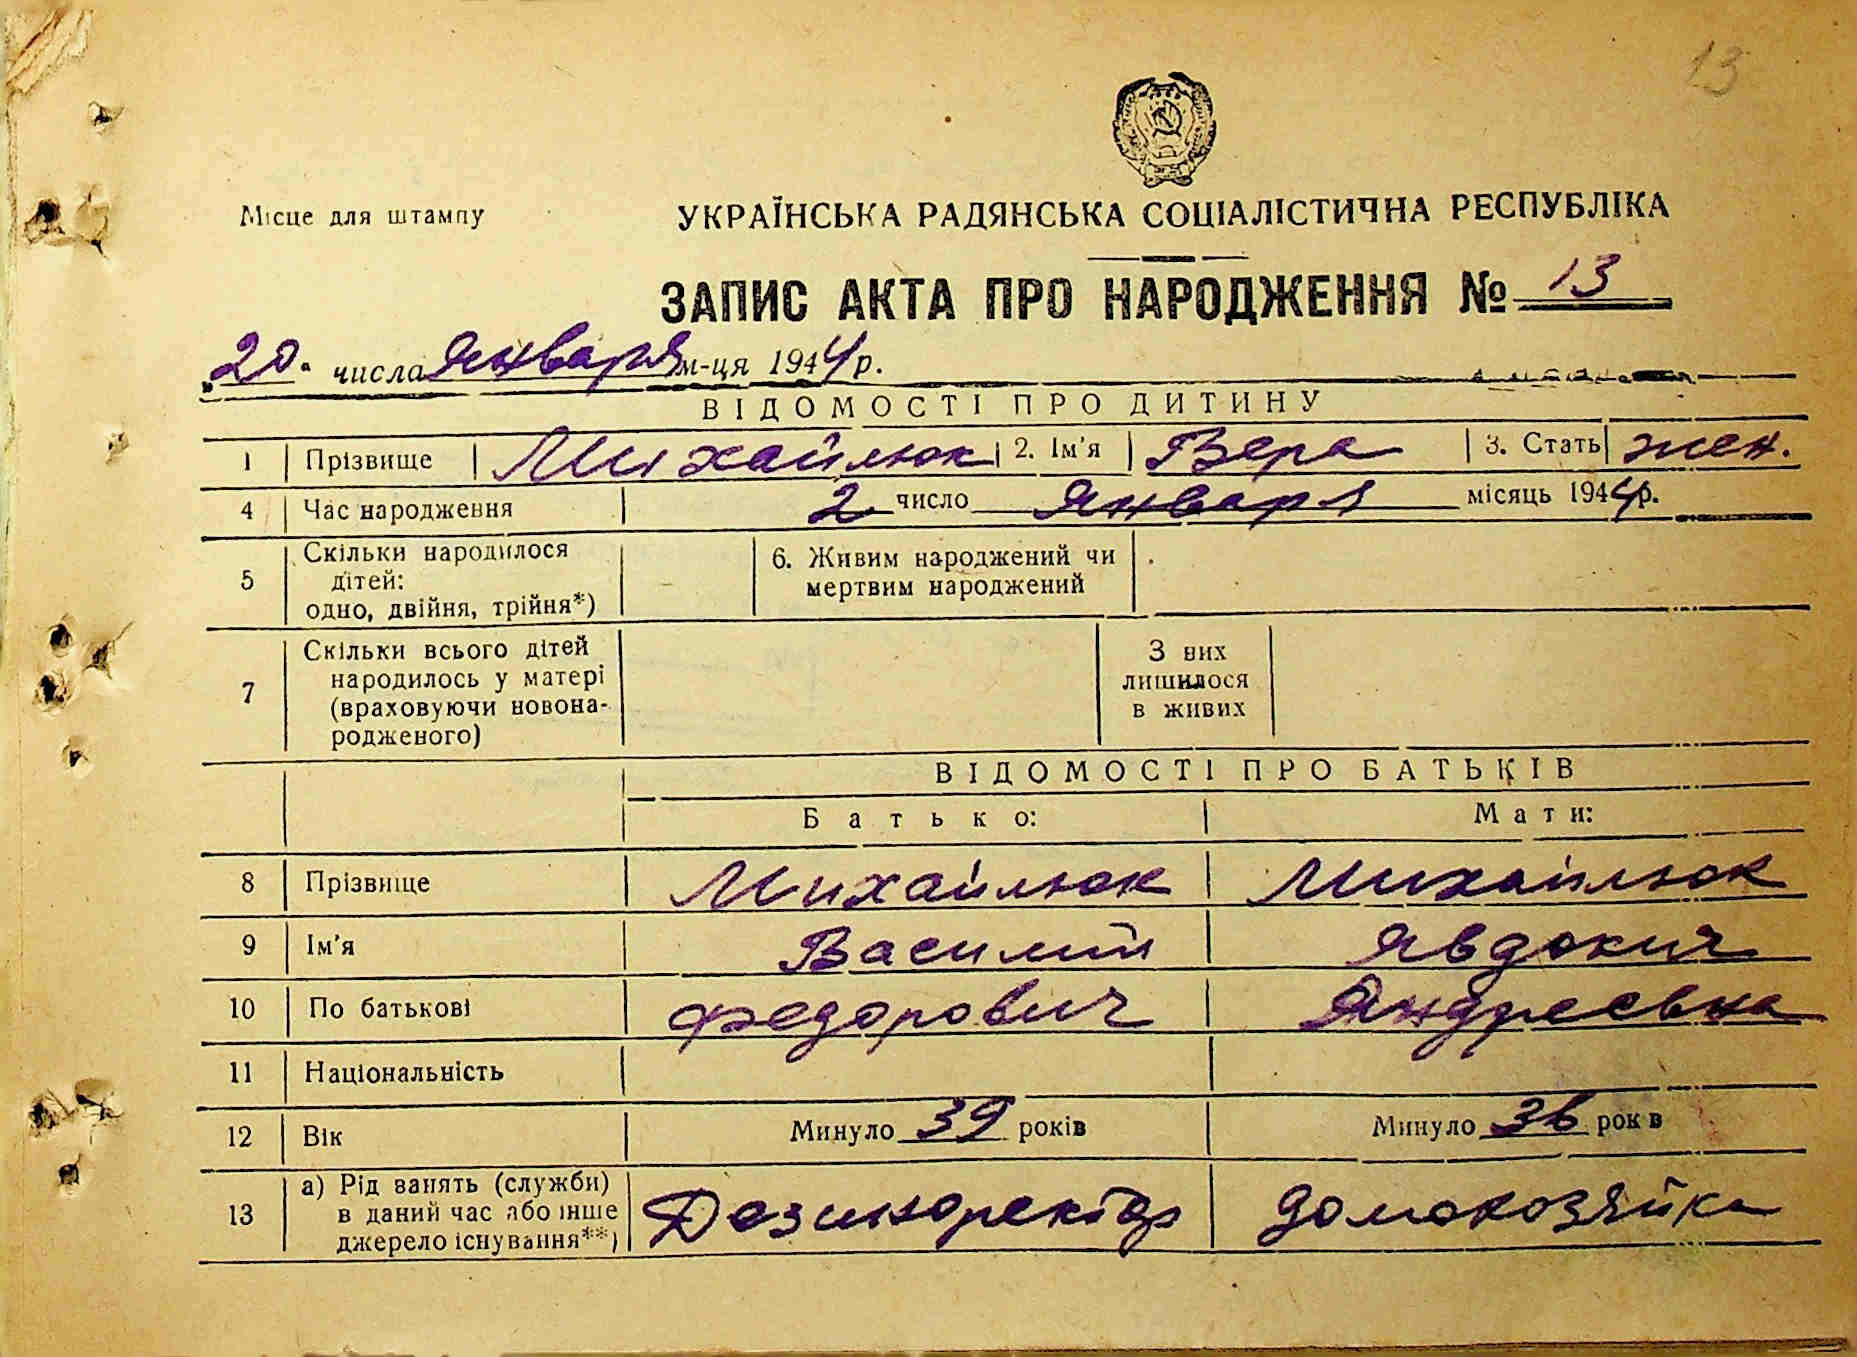 13
Місце для штампу
УКРАЇНСЬКА РАДЯНСЬКА СОЦІАЛІСТИЧНА РЕСПУБЛІКА
ЗАПИС АКТА ПРО НАРОДЖЕННЯ № 13
„20" числа Января м-ця 1944 р.
ВІДОМОСТІ ПРО ДИТИНУ
1 Прізвище Михайлюк 2. Ім'я Вера 3. Стать жен.
4 Час народження 2 число Января місяць 1944 р.
5 Скільки народилося дітей: одно, двійня, трійня*) 6. Живим народжений чи мертвим народжений
7 Скільки всього дітей народилось у матері (враховуючи новонародженого) З них лишилося в живих
ВІДОМОСТІ ПРО БАТЬКІВ
Батько: Мати:
8 Прізвище Михайлюк Михайлюк
9 Ім'я Василий Явдокия
10 По батькові Федорович Яндреевна
11 Національність
12 Вік Минуло 39 років Минуло 36 рок в
13 а) Рід занять (служби) в даний час або інше джерело існування**) домохозяйка